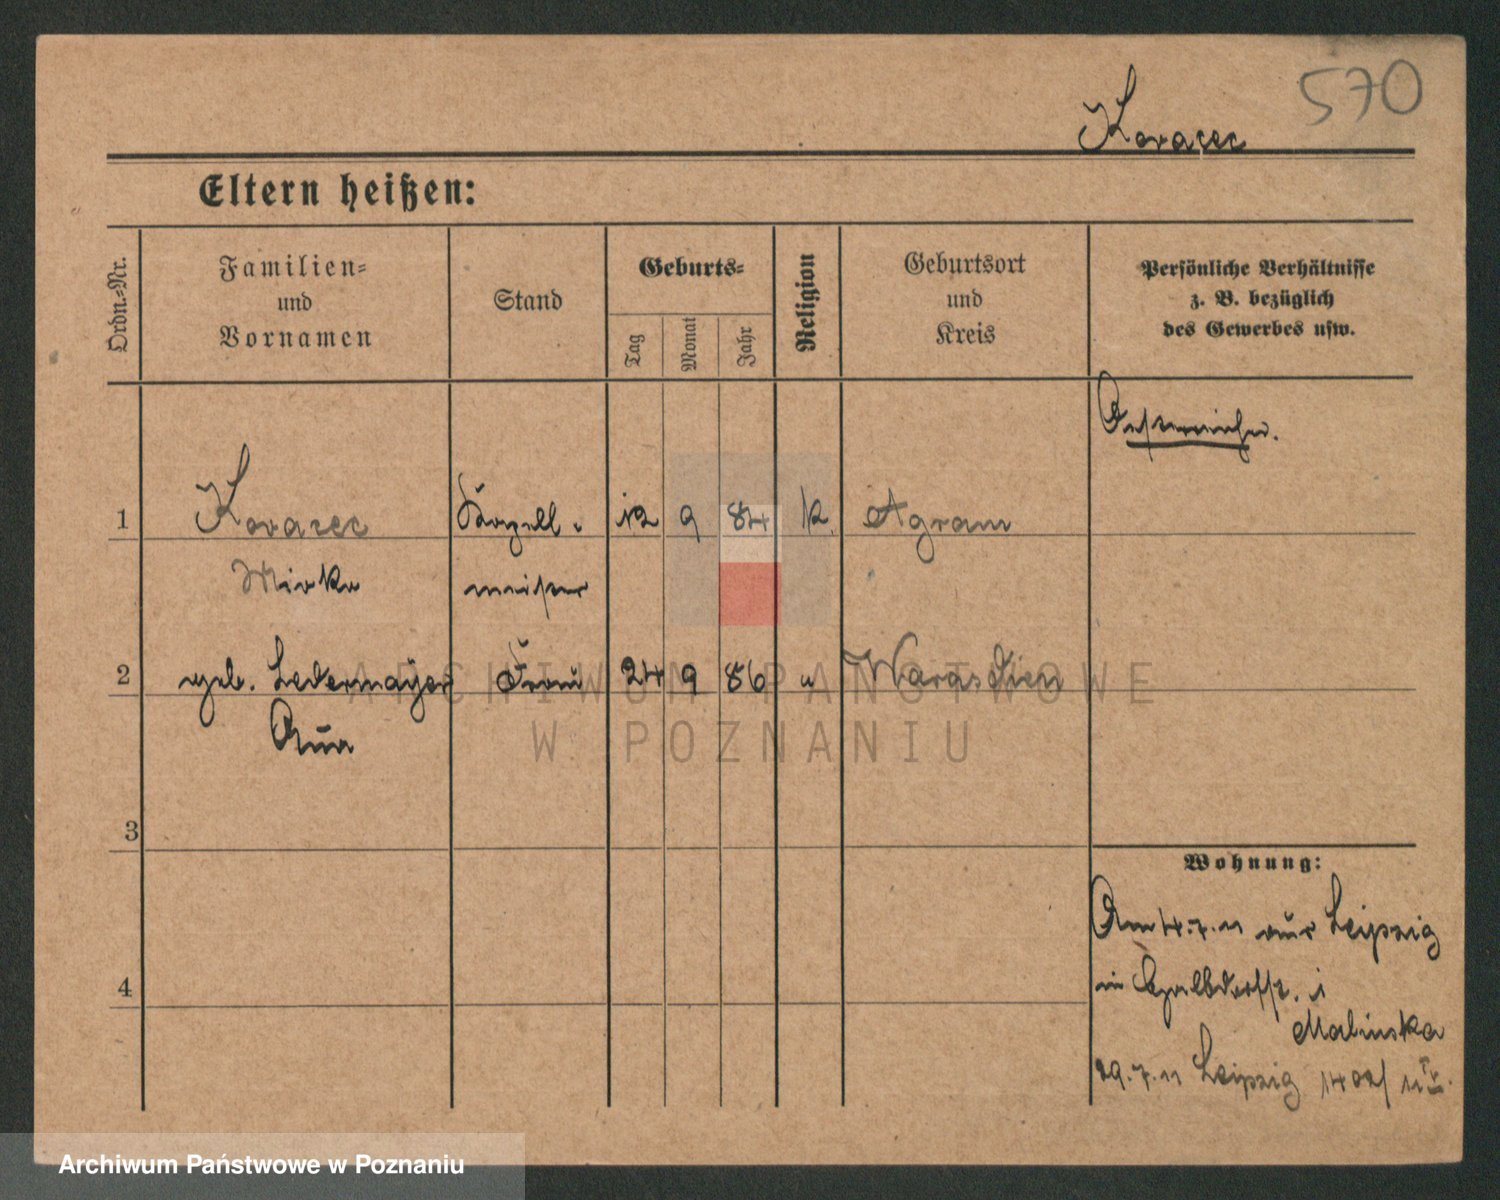 570
Kovacec
Eltern heißen:
Ordn.-Nr.
Familien-
und
Vornamen
Stand
Geburts-
Tag
Monat
Jahr
Religion
Geburtsort
und
Kreis
Persönliche Verhältnisse
z. B. bezüglich
des Gewerbes usw.
Oesterreicher.
1 Kovacec Kapell- 12 9 84 k. Agram
Mirko meister
2 geb. Ledermayer Frau 24 9 86 " Warasdien
3
4
Wohnung:
Am 4.7.11 aus Leipzig
in i
Malinska
29.7.11 Leipzig 1402/11
ARCHIWUM PAŃSTWOWE
W POZNANIU
Archiwum Państwowe w Poznaniu